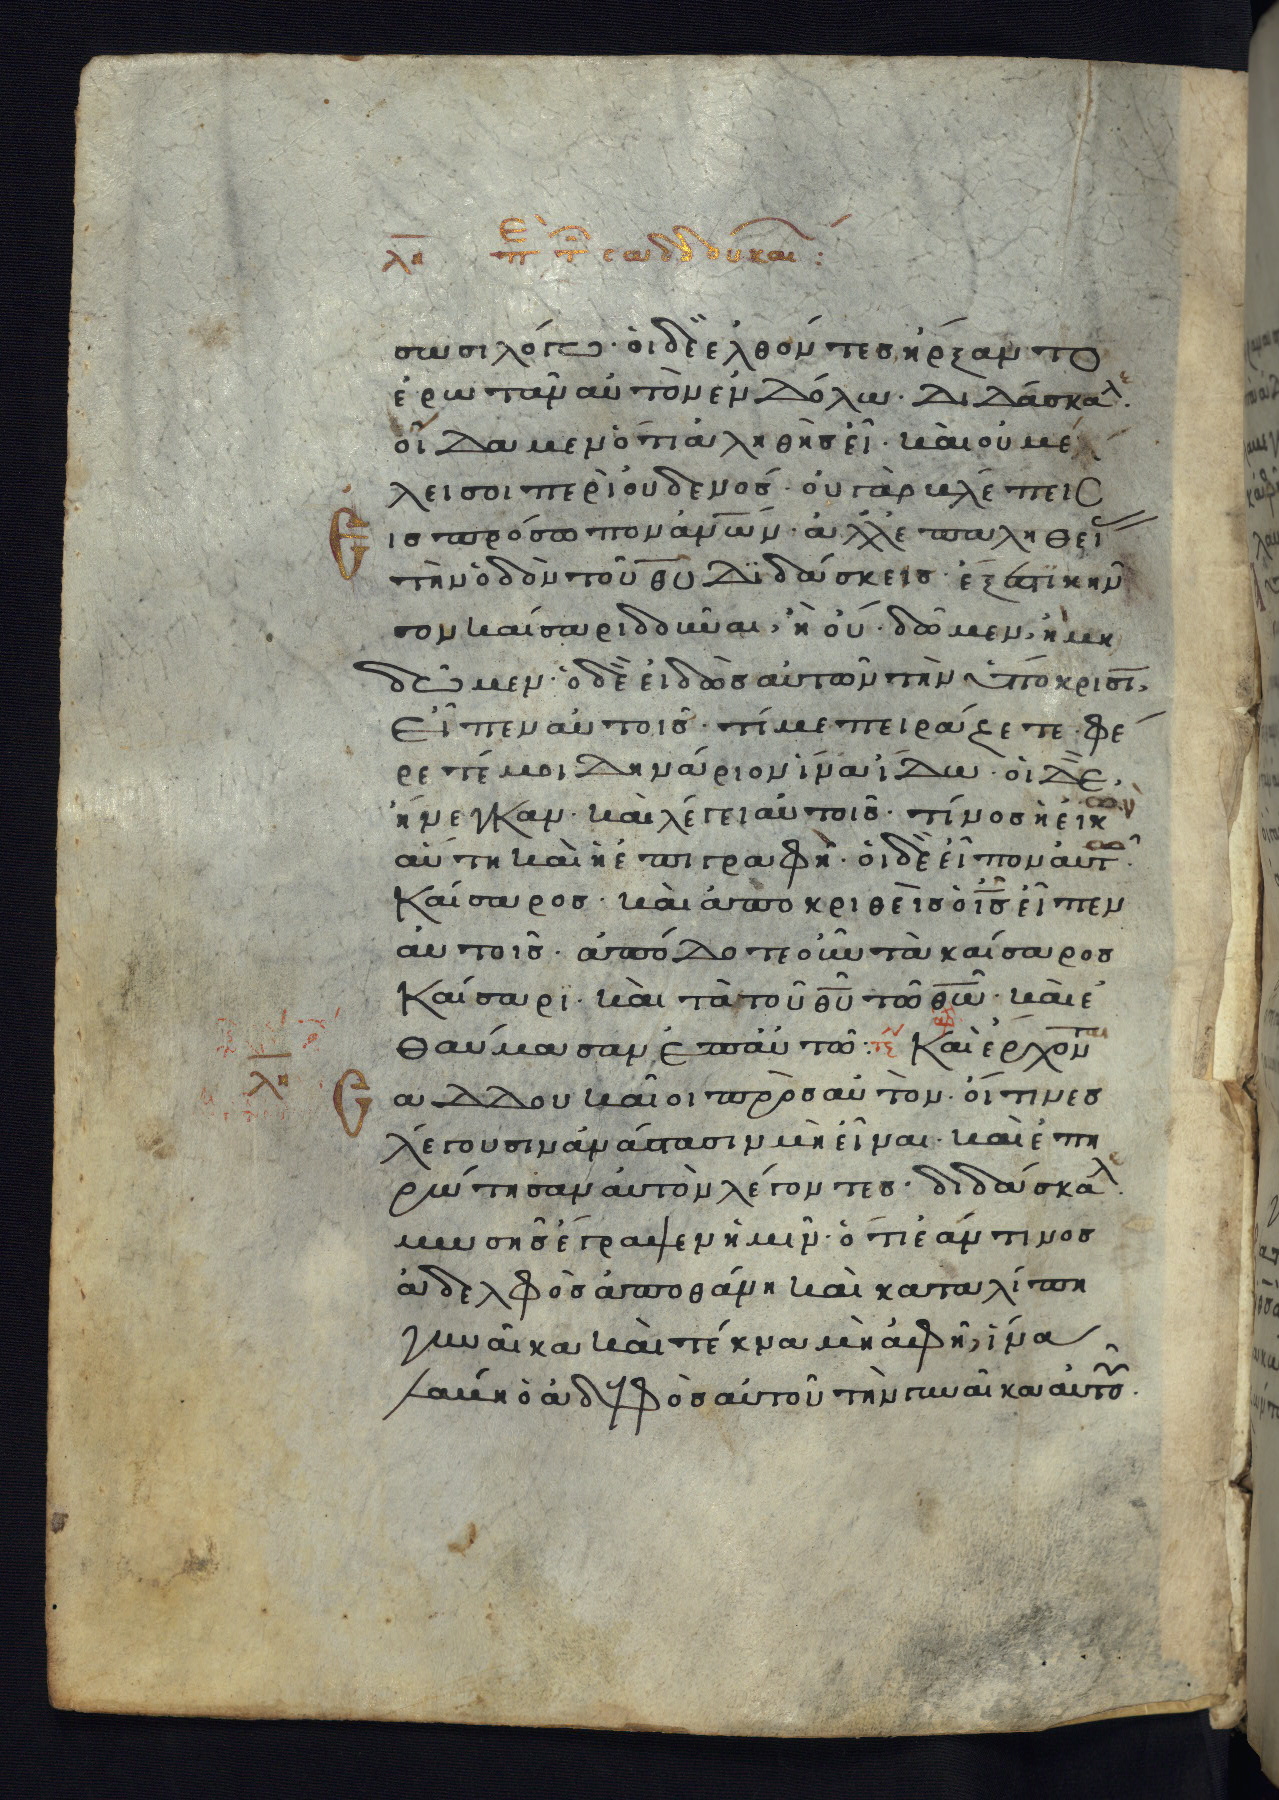 λη Ε̅π τ̅ σαδδουκαι :
σωσι λόγω· οἱ δὲ ἐλθόντες ἤρξαντο
ἐρωτᾶν αὐτὸν ἐν δόλω· διδάσκαλε·
οἴδαμεν ὅτι ἀληθὴς εἶ· καὶ οὐ μέ
λει σοι περὶ οὐδενός· οὐ γὰρ βλέπεις
εἰς πρόσωπον ἀν̅ω̅ν· ἀλλ' ἐπ' ἀληθεί
τὴν ὁδὸν τοῦ θ̅υ̅ διδάσκεις· ἔξεστι κῆν
σον καίσαρι δοῦναι, ἢ οὔ· δῶμεν, ἢ μὴ
δῶμεν· ὁ δὲ εἰδὼς αὐτῶν τὴν ὑπόκρισι,
εἶπεν αὐτοῖς· τί με πειράζετε· φέ
ρετέ μοι δηνάριον ἵνα ἴδω· οἱ δὲ,
ἤνεγκαν· καὶ λέγει αὐτοῖς· τίνος ἡ εἰκὼν
αὕτη καὶ ἡ ἐπιγραφή· οἱ δὲ εἶπον αὐτῶ·
καίσαρος· καὶ ἀποκριθεὶς ὁ ι̅ς̅ εἶπεν
αὐτοῖς· ἀπόδοτε οὖν τὰ καίσαρος
καίσαρι· καὶ τὰ τοῦ θ̅υ̅ τῶ θ̅ω̅· καὶ ἐ
θαύμασαν ἐπ' αὐτῶ: τε Καὶ ἔρχονται
λη
σαδδουκαῖοι πρὸς αὐτόν· οἵτινες
λέγουσιν ἀνάστασιν μὴ εἶναι· καὶ ἐπη
ρώτησαν αὐτὸν λέγοντες· διδάσκαλε·
μωσῆς ἔγραψεν ἡμῖν· ὅτι ἐάν τινος
ἀδελφὸς ἀποθάνη καὶ καταλίπη
γυναῖκα καὶ τέκνα μὴ ἀφῆ, ἵνα
λάβη ὁ ἀδελφὸς αὐτοῦ τὴν γυναῖκα αὐτοῦ·